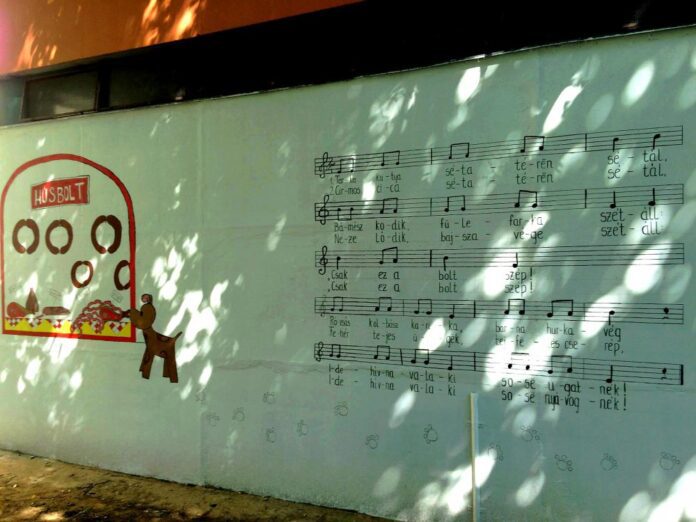 HÚSBOLT
1. Tar-ka ku-tya sé-ta - té-rén sé-tál,
2. Cir-mos ci-ca sé-ta - té-rén sé-tál,
Bá-mész ko-dik, fü-le - far-ka szét-áll:
Né-ze lő-dik, baj-sza - vé-ge szét-áll:
„Csak ez a bolt szép!
„Csak ez a bolt szép!
Ró-zsás kol-bász ka-ri-ka, bar-na hur-ka - vég
I-de - hív-na - va-la-ki so-se u-gat-nék!
I-de - hív-na va-la-ki so-se nyá-vog-nék!